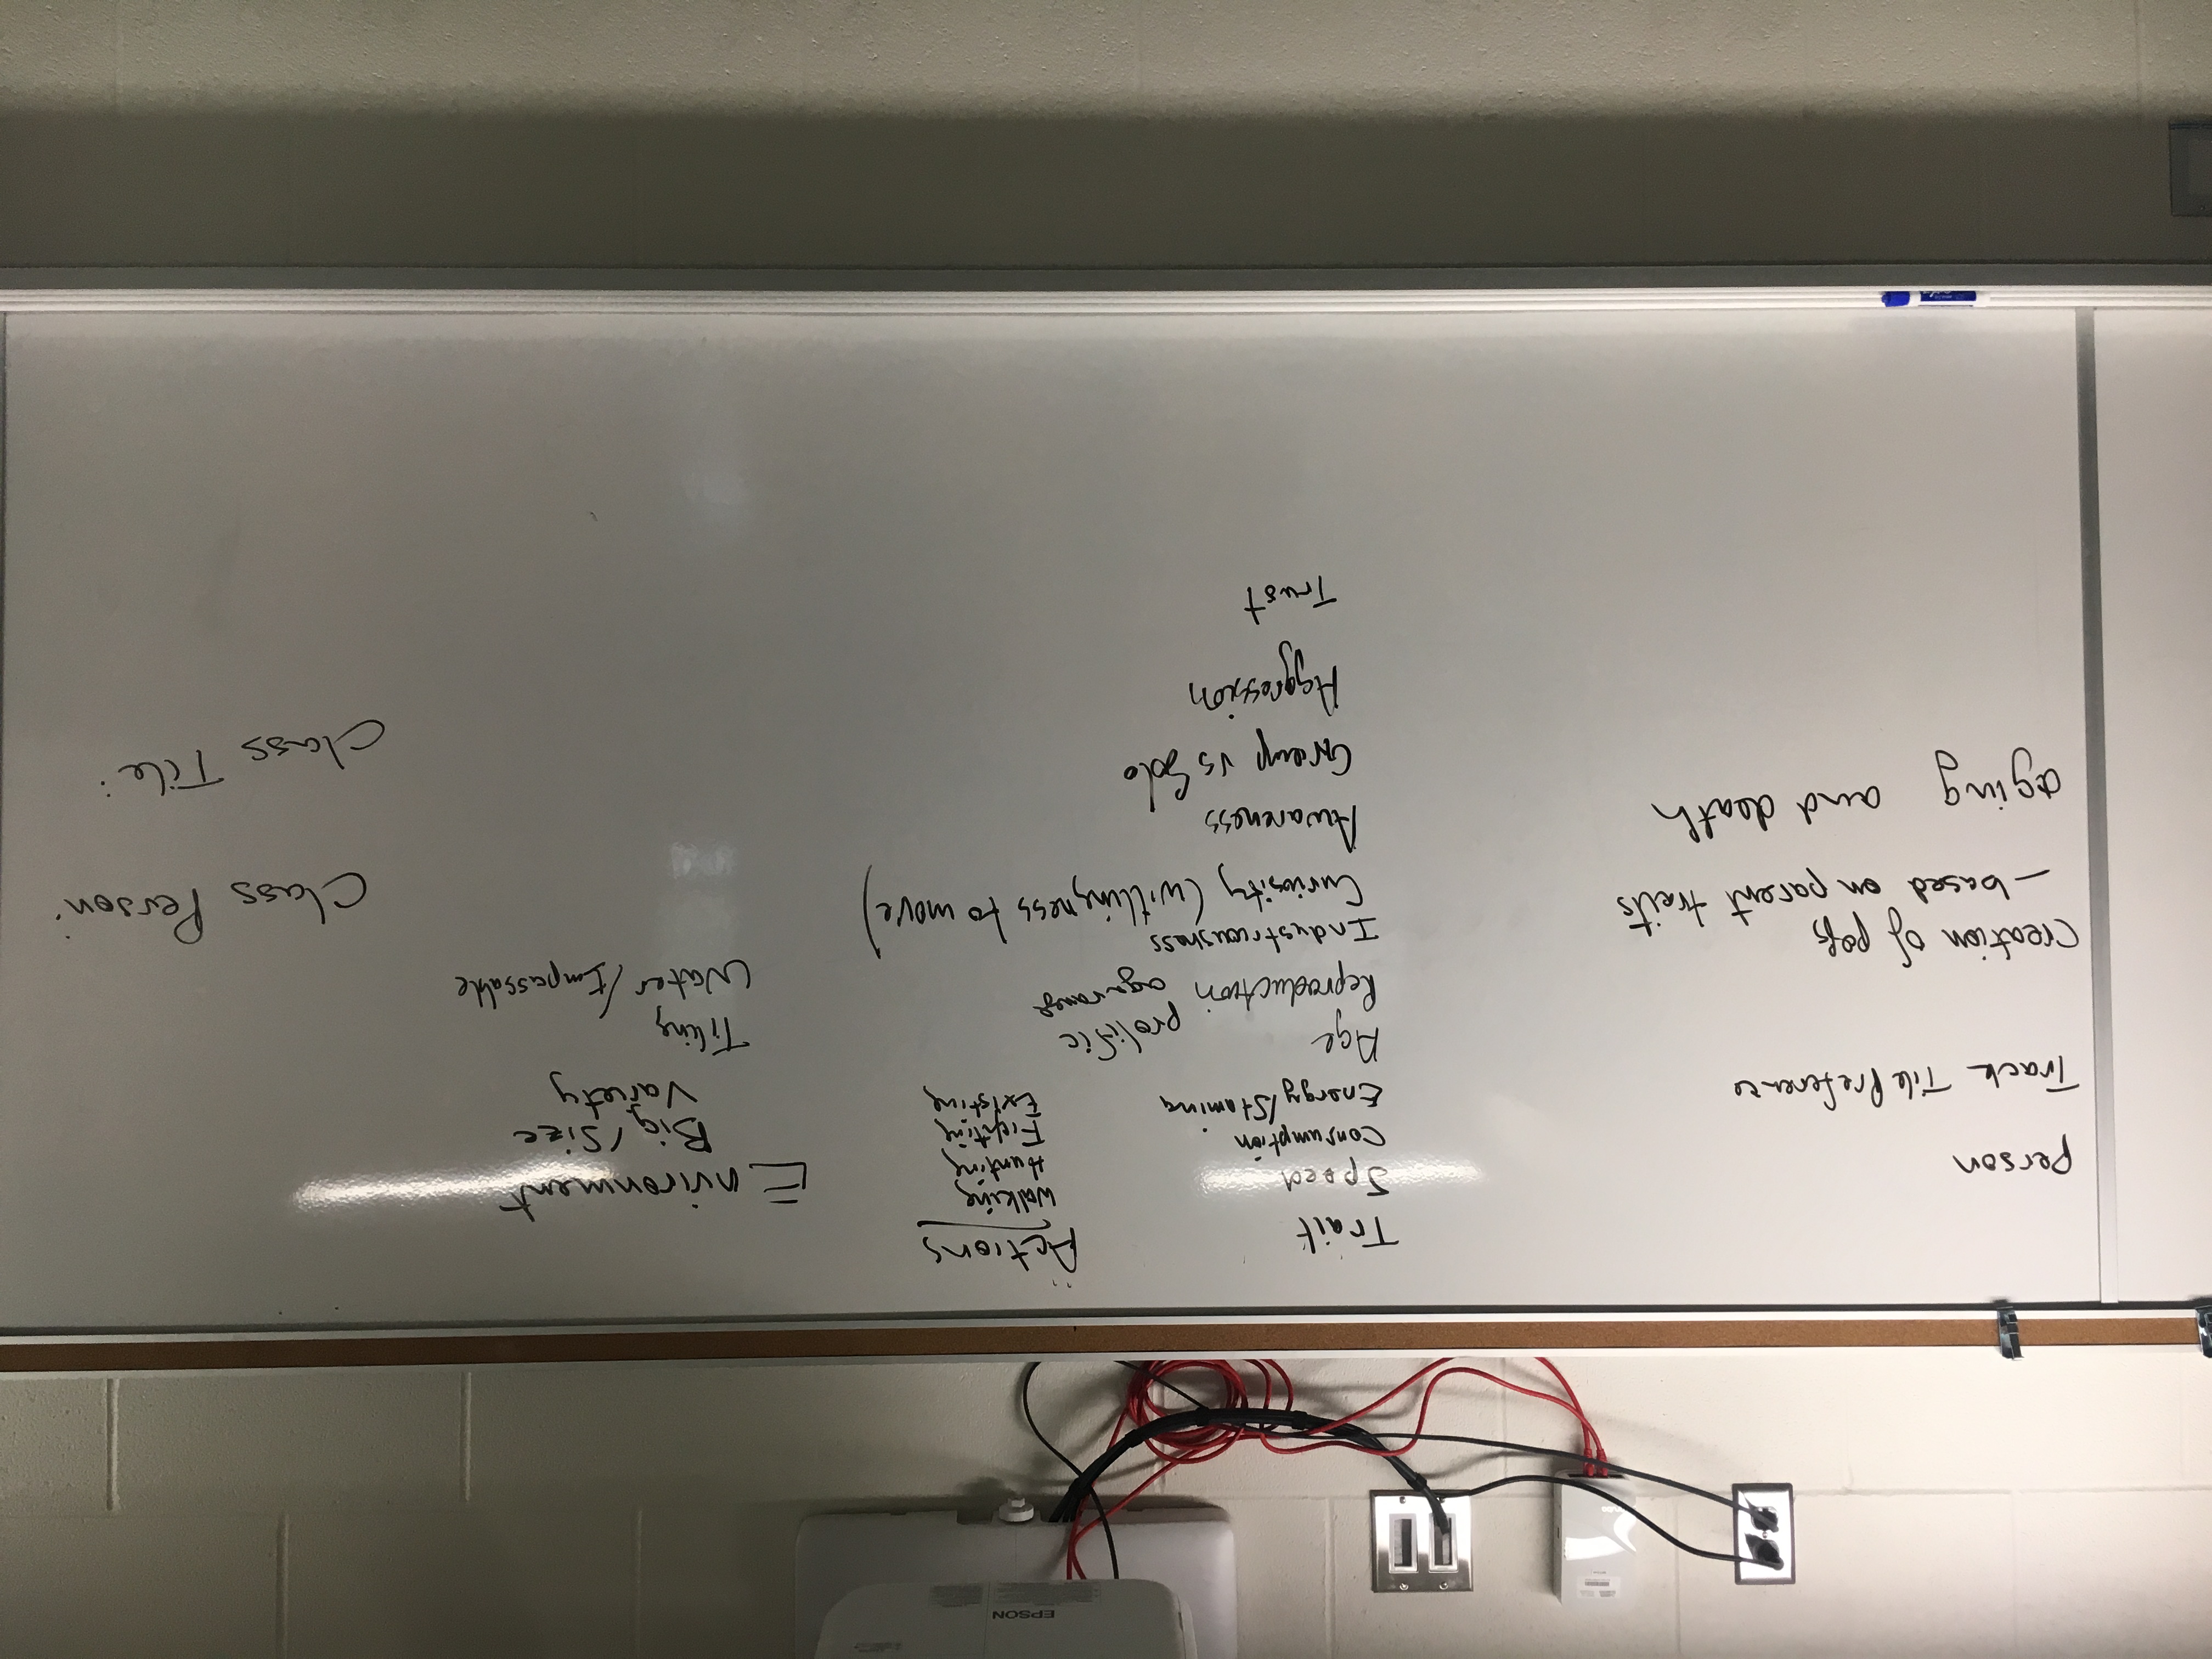 EPSON
person
Track Tile Preference
creation of pops
- based on parent traits
aging and death
Trait
Speed
Consumption
Energy/Stamina
Age
Reproduction prolific
age range
Industriousness
Curiosity (willingness to move)
Awareness
Group vs Solo
Aggression
Trust
Actions
Walking
Hunting
Fighting
Existing
Environment
Big/Size
Variety
Tiling
Water/Impassable
Class Person:
Class Tile: